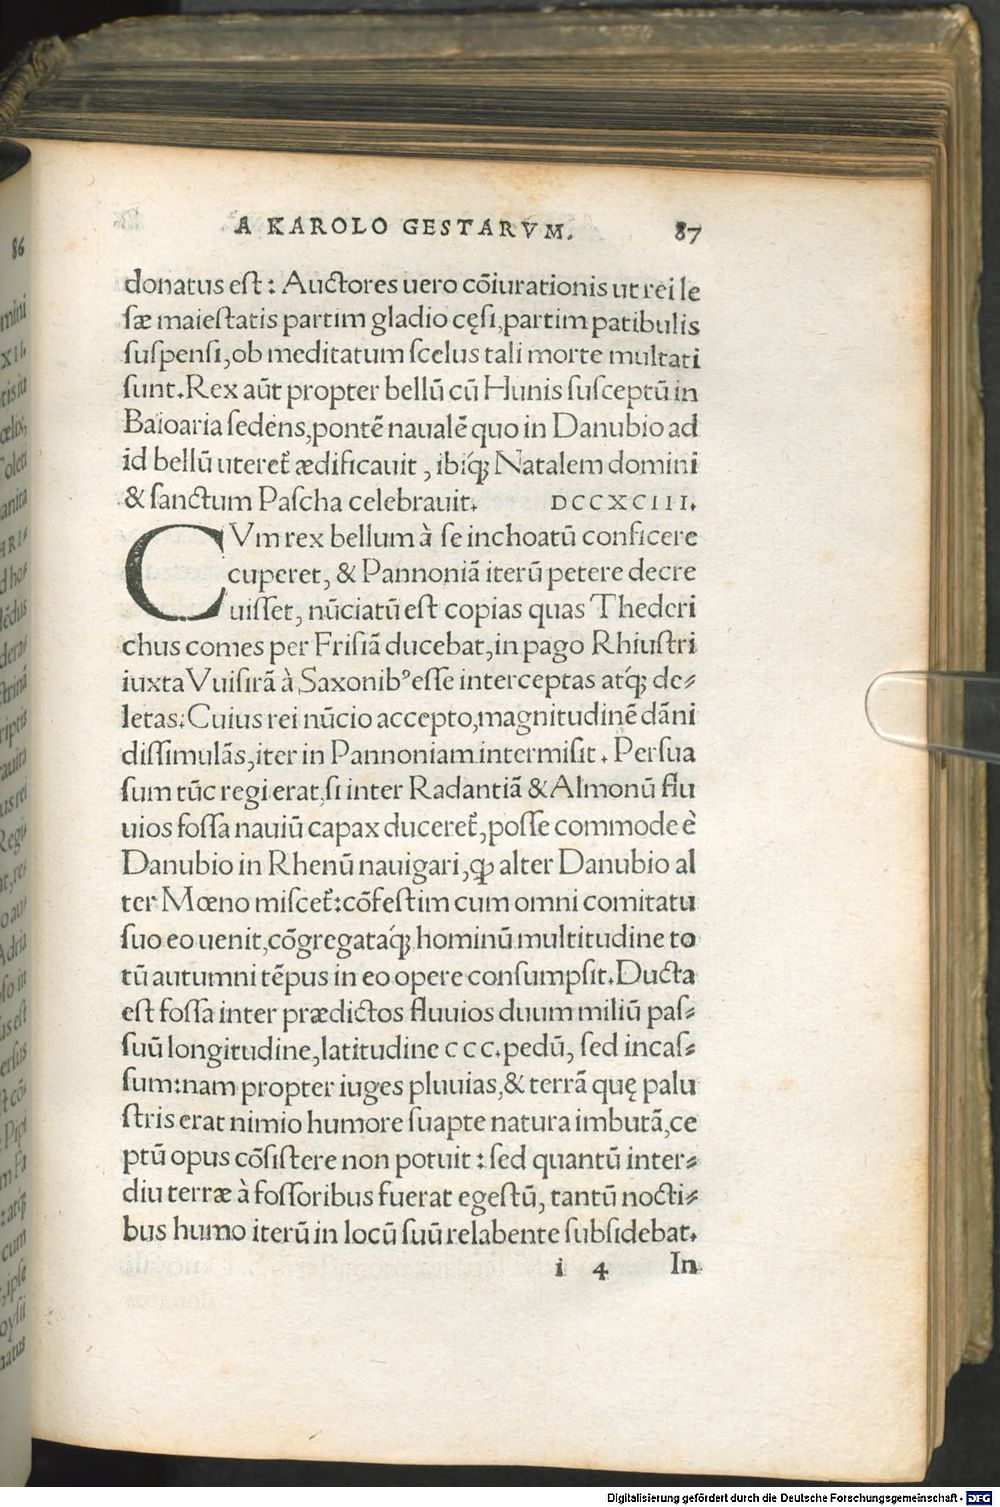 A KAROLO GESTARVM. 87
donatus eſt : Auctores uero cõiurationis ut rei le
ſæ maieſtatis partim gladio cęſi, partim patibulis
ſuſpenſi, ob meditatum ſcelus tali morte multati
ſunt. Rex aũt propter bellũ cũ Hunis ſuſceptũ in
Baioaria ſedens, pontẽ naualẽ quo in Danubio ad
id bellũ uteret᷑ ædificauit , ibiq́ꝫ Natalem domini
& ſanctum Paſcha celebrauit. DCCXCIII.
CVm rex bellum à ſe inchoatũ conficere
cuperet, & Pannoniã iterũ petere decre
uiſſet, nũciatũ eſt copias quas Thederi
chus comes per Friſiã ducebat, in pago Rhiuſtri
iuxta Vuiſirã à Saxonibꝰ eſſe interceptas atq́ꝫ de⸗
letas: Cuius rei nũcio accepto, magnitudinẽ dãni
diſſimulãs, iter in Pannoniam intermiſit . Perſua
ſum tũc regi erat, ſi inter Radantiã & Almonũ flu
uios foſſa nauiũ capax duceret᷑, poſſe commode è
Danubio in Rhenũ nauigari, ꝙ alter Danubio al
ter Mœno miſcet᷑: cõfeſtim cum omni comitatu
ſuo eo uenit, cõgregataq́ꝫ hominũ multitudine to
tũ autumni tẽpus in eo opere conſumpſit. Ducta
eſt foſſa inter prædictos fluuios duum miliũ paſ⸗
ſuũ longitudine, latitudine ccc. pedũ, ſed incaſ⸗
ſum: nam propter iuges pluuias, & terrã quę palu
ſtris erat nimio humore ſuapte natura imbutã, ce
ptũ opus cõſiſtere non potuit : ſed quantũ inter⸗
diu terræ à foſſoribus fuerat egeſtũ, tantũ nocti⸗
bus humo iterũ in locũ ſuũ relabente ſubſidebat.
i 4 In
86
Digitalisierung gefördert durch die Deutsche Forschungsgemeinschaft - DFG